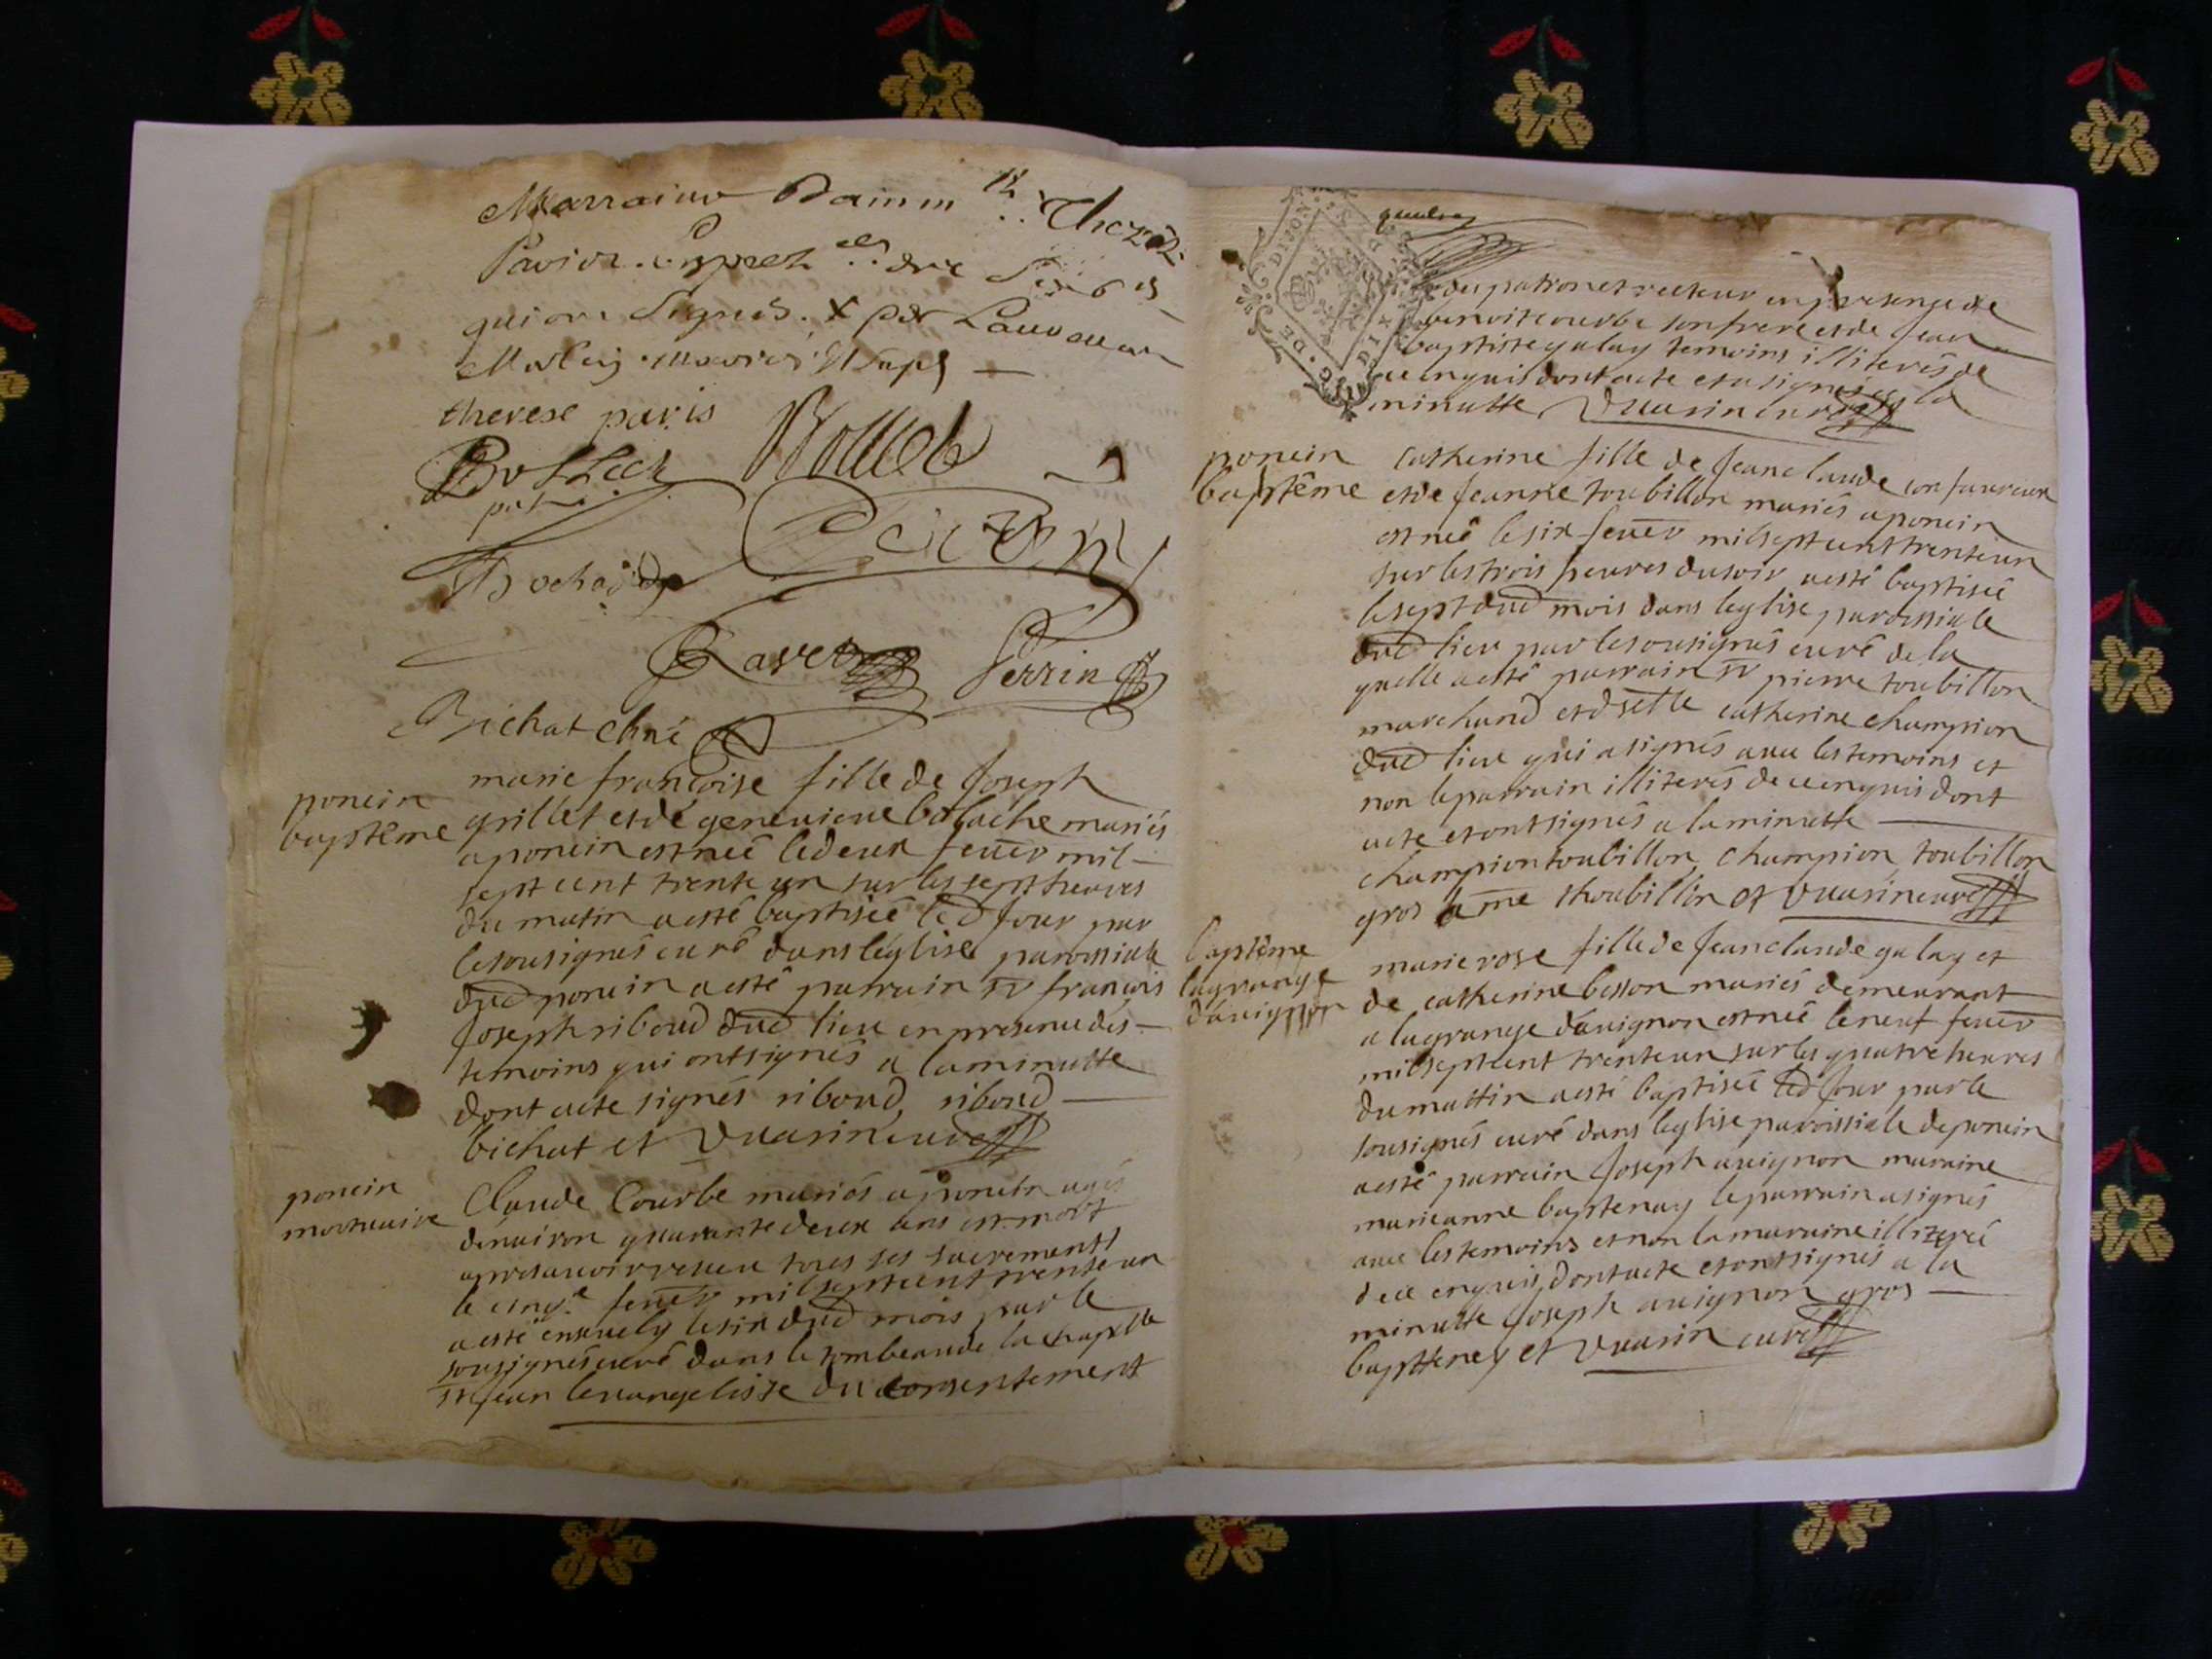 Marraine
qui ont signés . X par
therese paris
Bottex
Rouuet
Perrin
Bichat Chñe
poncin
baptême
marie francoise fille de Joseph
grillet et de geneuieue balache mariés
a poncin est neê le deux feuer mil
sept cent trente un sur les sept heures
du matin a esté baptiseê led jour par
le sousignés curé dans leglise paroissiale
dud poncin a esté parrain sr francois
Joseph riboud dud lieu en presence des
temoins qui ont signés a la minutte
dont acte signés riboud, riboud
bichat et Vuarin curé
poncin
mortuaire
Claude Courbe mariés a poncin agés
denuiron quarante deux ans est mort
apres auoir receu tous ses sacrements
le cinqe feuer mil sept cent trente un
a esté enseuely le six dud mois par le
sousignés curé dans le tombeau de la chapelle
st jean leuangeliste du consentement
DIJON
du patron et recteur en presence de
benoit courbe son frere et de Jean
baptiste galay temoins illiterés de
ce enquis dont acte et a signés a la
minutte, Vuarin curé
poncin
baptême
catherine fille de Jean claude confaureux
et de Jeanne toubillon mariés a poncin
est neê le six feuer mil sept cent trente un
sur les trois heures du soir a esté baptiseê
le sept dud mois dans leglise paroissiale
dud lieu par le sousignés curé de la
quelle a esté parrain sr pierre toubillon
marchand et dselle catherine champion
dud lieu qui a signés auec les temoins et
non le parrain illiterés de ce enquis dont
acte et ont signés a la minutte
champion toubillon, champion, toubillon
gros ame thoubillon et Vuarin curé
baptême
lagrange
dauignon
marie rose fille de Jean claude galay et
de catherine besson mariés demeurant
a lagrange dauignon est neê le neuf feuer
mil sept cent trente un sur les quatre heures
du mattin a esté baptiseê led jour par le
sousignés curé dans leglise paroissiale de poncin
a esté parrain Joseph auignon maraine
marieanne baptenay le parrain a signés
auec les temoins et non la maraine illitereê
de ce enquis, dont acte et ont signés a la
minutte Joseph auignon gros
baptteney et Vuarin curé